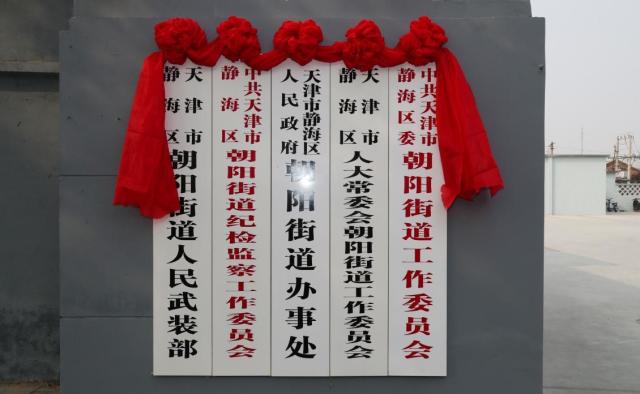 天津市
静海区
朝阳街道人民武装部
中共天津市
静海区
朝阳街道纪检监察工作委员会
天津市静海区
人民政府
朝阳街道办事处
天津市
静海区
人大常委会朝阳街道工作委员会
中共天津市
静海区委
朝阳街道工作委员会